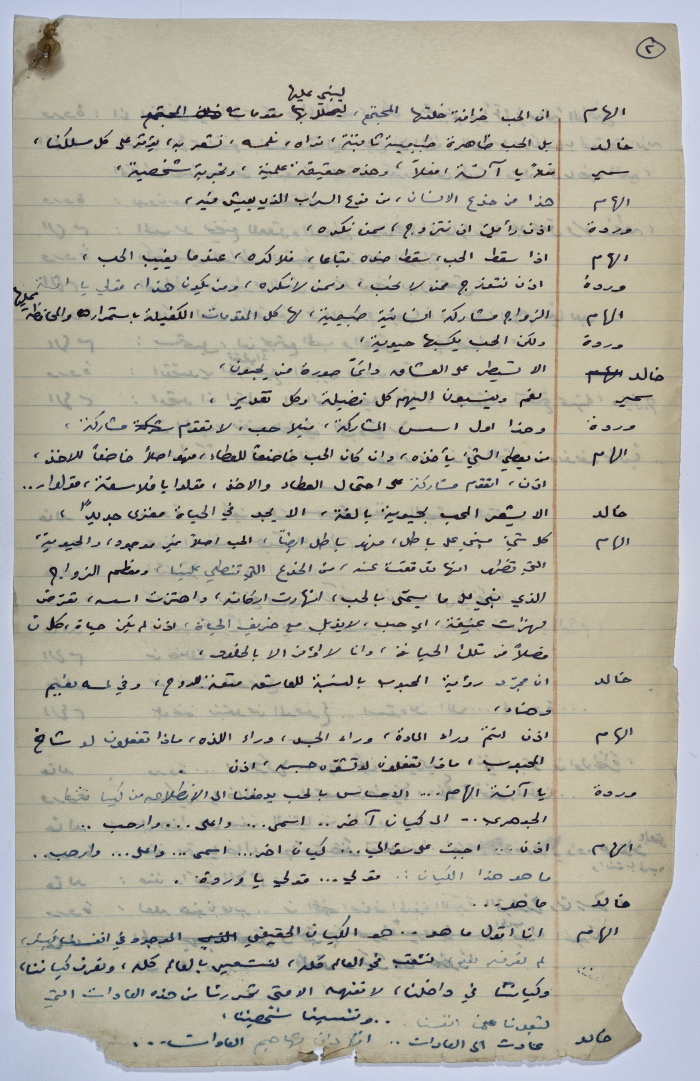 ٢
ليبني عليها
الهام ان الحب خرافة خلقها المجتمع، ليحلل بها مقدمات خلف المجتمع
خالد بل الحب ظاهرة طبيعية ثابتة، نراه، نلمسه، نشعر به، يؤثر على كل مسلكنا،
سمير فعلاً يا آنسة، فعلاً، وهذه حقيقة علمية، وتجربة شخصية،
الهام هذا من خدع الانسان، من نوع السراب الذي يعيش فيه،
وردة اذن رأيك ان نتزوج، ممن نكره،
الهام اذا سقط الحب، سقط ضده تباعا، فلا كره، عندما يغيب الحب،
وردة اذن نتزوج ممن لا نحب، وممن لا نكره، ومن يكون هذا، قولي يا الهام
الهام الزواج مشاركة انسانية طبيعية، لها كل المقومات الكفيلة باستمراره والمحافظة عليها
وردة ولكن الحب يكسبها حيوية،
خالد الا تسيطر على العشاق دائماً صورة من يحبون،
سمير نعم وينسبون اليهم كل فضيلة وكل تقدير،
وردة وهذا اول اسس المشاركة، فبلا حب، لا تقوم شركة مشاركة،
الهام من يعطي الشيء يأخذه، وان كان الحب خاضعاً للعطاء، فهو اصلاً خاضعاً للأخذ،
اذن، اتقوم مشاركة على احتمال العطاء والاخذ، قولوا يا فلاسفة، قولوا..
خالد الا يشعر المحب بحيوية بالغة، الا يجد في الحياة مغزى جديداً،
الهام كل شيء مبني على باطل، فهو باطل ايضاً، الحب اصلاً غير موجود، والحيوية،
التي تظهر انها قد نتجت عنه، من الخدع التي تنطلي علينا، ومعظم الزواج
الذي بني على ما يسمى بالحب، انهارت اركانه، واهتزت اسسه، تعرض
لهزات عنيفة، اي حب، لا يذبل مع خريف الحياة، اذن لم يكن حياة، كان
فصلاً من تلك الحياة، وانا لا اؤمن الا بالخلود،
خالد ان مجرد رؤية المحبوب بالنسبة للعاشق متعة للروح، وفي لمسه نعيم
وهناء،
الهام اذن انتم وراء المادة، وراء الجسد، وراء اللذة، ماذا تفعلون لو شاخ
المحبوب، ماذا تفعلون لو تشوه جسمه، اذن
وردة يا آنسة الهام... الاحساس بالحب يدفعنا الى الانطلاق من كياننا
الجوهري.. الى كيان آخر.. اسمى... واعلى... وارحب..
الهام اذن... اجيبي على سؤالي... كيان اخر... اسمى... واعلى... وارحب..
ما هو هذا الكيان.. قولي... قولي يا وردة.
خالد ما هو...
الهام انا اقول ما هو.. هو الكيان الحقيقي الموجود في انفسنا
لم نعرفه نحن، نتعب في العالم كله، نستعين بالعالم كله، ونعرف كياننا،
وكياننا في داخلنا، لا نفهمه الا متى تحررنا من هذه العادات التي
تبعدنا عن انفسنا.. وتنسينا شخصيتنا،
خالد عادت الى العادات.. العادات...